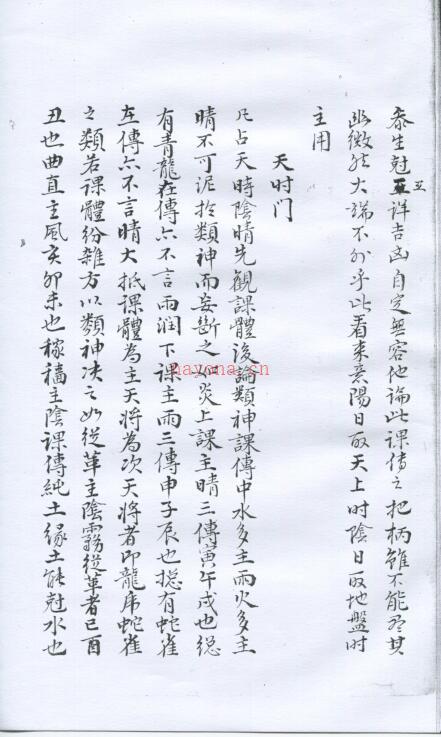 泰生尅互詳吉凶自定無容他論此課傳之把柄雖不能尽其
幽微然大端不外乎此看來意陽日取天上时陰日取地盤时
主用
天时门
凡占天時陰晴先観課體後論類神課傳中水多主雨火多主
晴不可泥扵類神而妄斷之如炎上課主晴三傳寅午戌也縂
有青龍在傳亦不言雨润下課主雨三傳申子辰也縂有蛇雀
在傳亦不言晴大抵課體為主天將為次天將者即龍虎蛇雀
之類若課體紛雜方以類神决之如從革主陰霧從革者巳酉
丑也曲直主風亥卯未也稼穡主陰課傳純土缘土能尅水也
hayona.cn